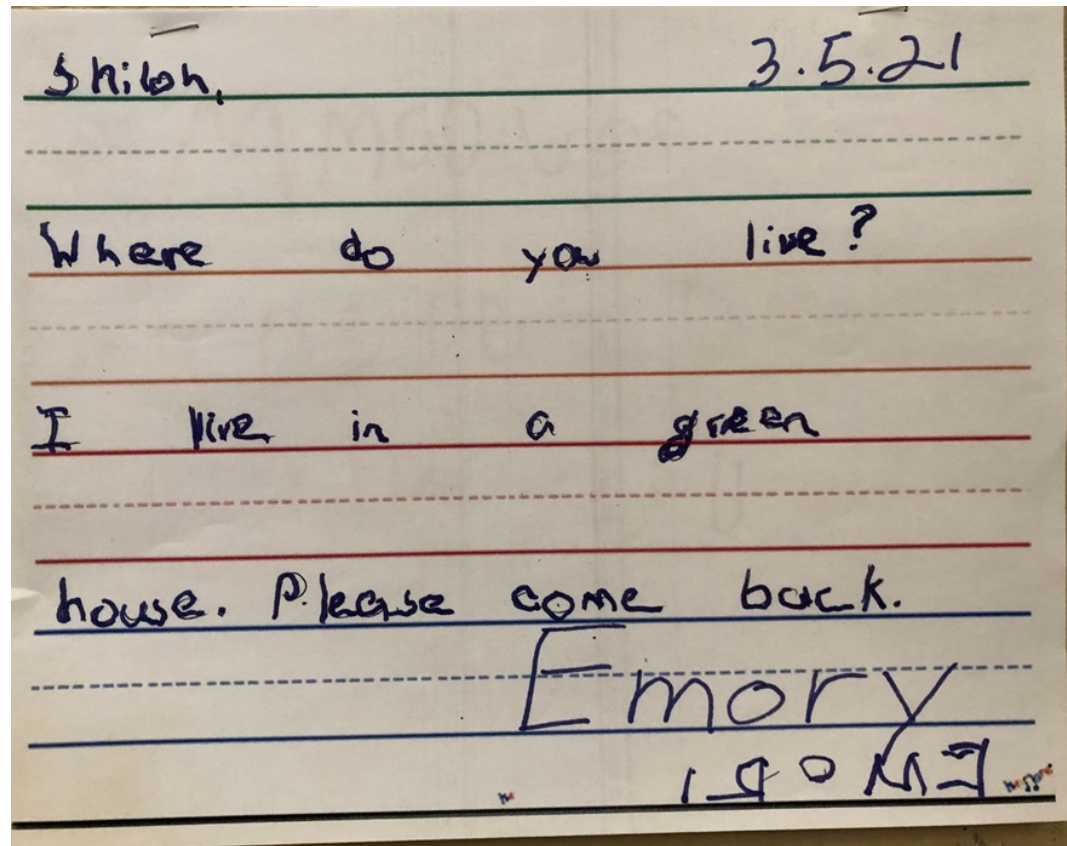 Shiloh, 3.5.21
Where do you live?
I live in a green
house. Please come back.
Emory